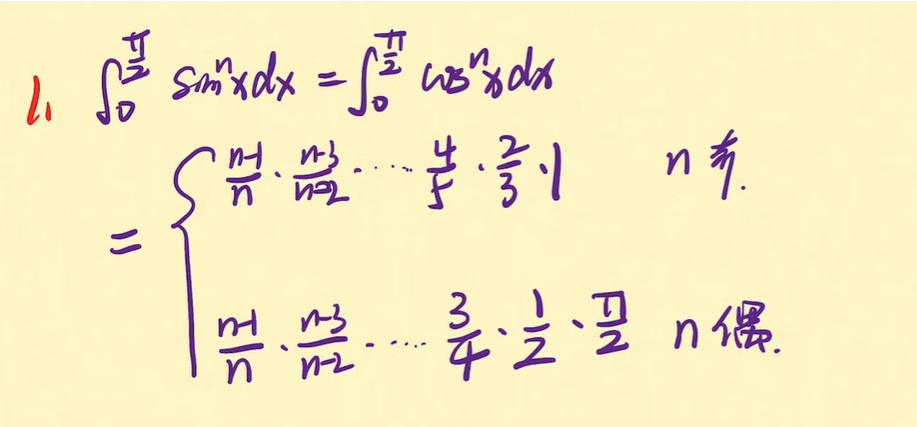 1. ∫₀^{π/2} sinⁿx dx = ∫₀^{π/2} cosⁿx dx
= { (n-1)/n · (n-3)/(n-2) · ···· 4/5 · 2/3 · 1    n 奇.
(n-1)/n · (n-3)/(n-2) · ···· 3/4 · 1/2 · π/2    n 偶.